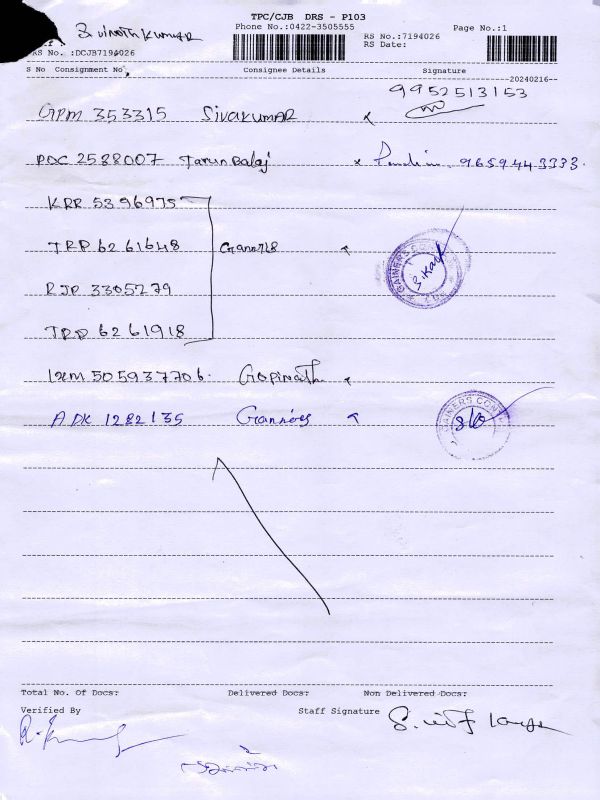 TPC/CJB DRS - P103
Phone No.:0422-3505555 Page No.:1
S.vinothkumar
RS No.:7194026
RS No. :DCJB7194026 RS Date:
S No Consignment No. Consignee Details Signature
20240216
9952513153
GPM 353315 SIVAKUMAR
PDC 2588007 Tarun Balaj 9659443333.
KRR 5396975
TRP 6261648 Gainers
GAINERS
S.Kal
RJP 3305279
TRP 6261918
IXM 505937706. Gopinath
ADK 1282135 Gainers
GAINERS
Total No. Of Docs: Delivered Docs: Non Delivered Docs:
Verified By Staff Signature